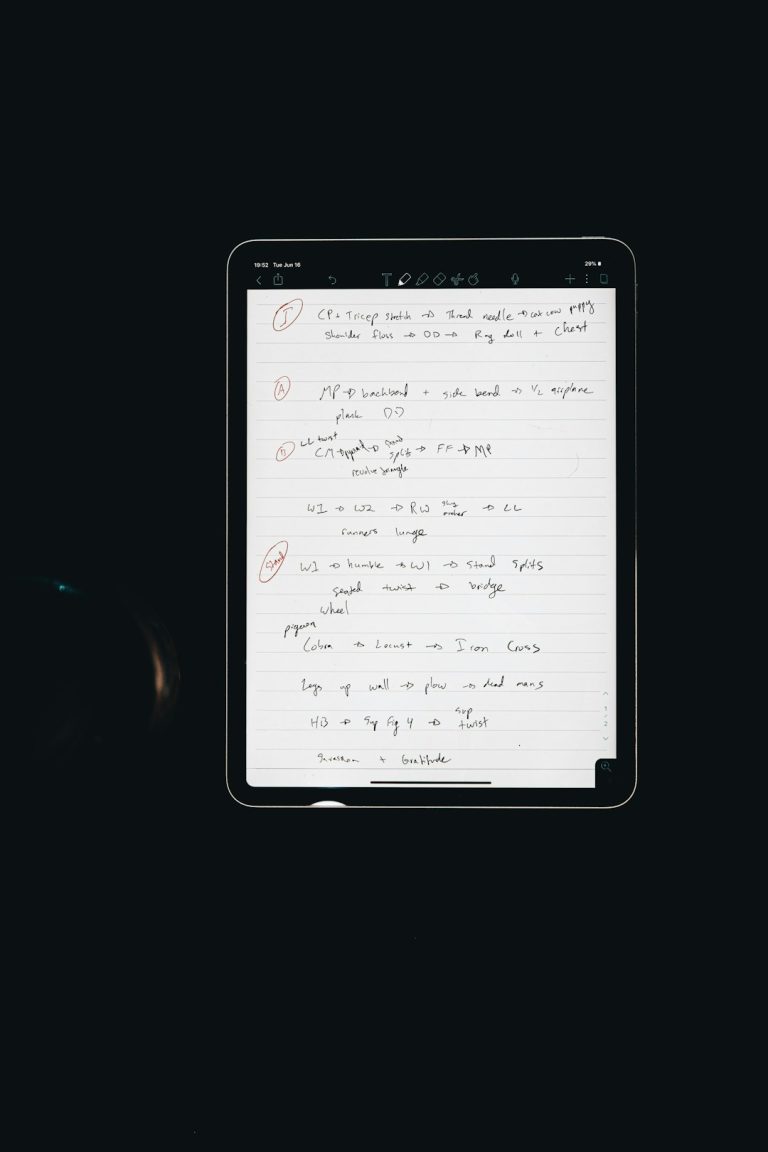 19:52 Tue Jun 16
29%
T
I
CP + Tricep stretch → Thread needle → cat cow puppy
Shoulder floss → DD → Rag doll + chest
A
MP → backbend + side bend → 1/2 airplane
plank DD
LL twist
B
CM → pyramid → stand splits → FF → MP
revolve triangle
W1 → W2 → RW → LL
runners lunge
Stand
W1 → humble → W1 → Stand Splits
seated twist → bridge
wheel
pigeon
Cobra → Locust → Iron Cross
Legs up wall → plow → dead mans
HB → Sup Fig 4 → sup twist
Savasana + Gratitude
1
2